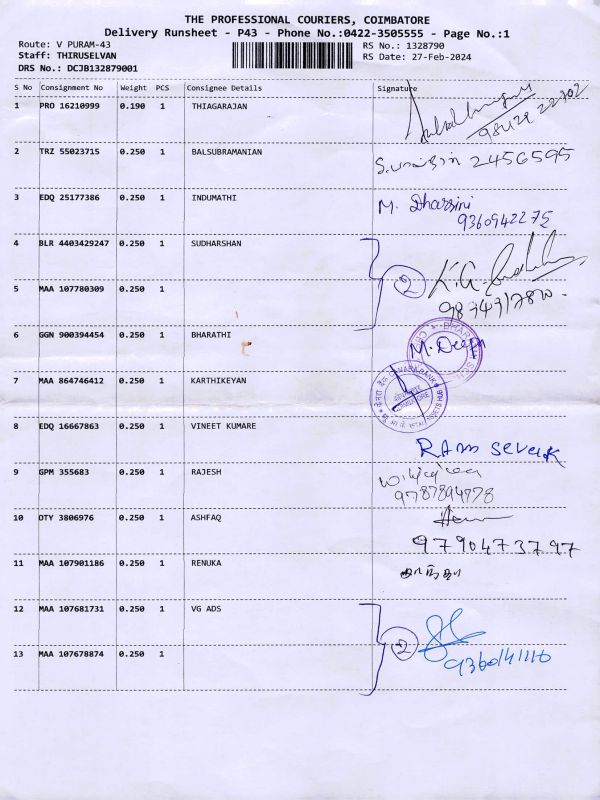 THE PROFESSIONAL COURIERS, COIMBATORE
Delivery Runsheet - P43 - Phone No.:0422-3505555 - Page No.:1
Route: V PURAM-43
Staff: THIRUSELVAN
DRS No.: DCJB132879001
RS No.: 1328790
RS Date: 27-Feb-2024
S No Consignment No Weight PCS Consignee Details Signature
1 PRO 16210999 0.190 1 THIAGARAJAN
2 TRZ 55023715 0.250 1 BALSUBRAMANIAN 2456595
3 EDQ 25177386 0.250 1 INDUMATHI M. Dharsini
9360942275
4 BLR 4403429247 0.250 1 SUDHARSHAN
5 MAA 107780309 0.250 1
2
6 GGN 900394454 0.250 1 BHARATHI M. Deepa
7 MAA 864746412 0.250 1 KARTHIKEYAN
8 EDQ 16667863 0.250 1 VINEET KUMARE
RAM SEVAK
9 GPM 355683 0.250 1 RAJESH
9787894778
10 DTY 3806976 0.250 1 ASHFAQ
9790473797
11 MAA 107901186 0.250 1 RENUKA
12 MAA 107681731 0.250 1 VG ADS
2
13 MAA 107678874 0.250 1